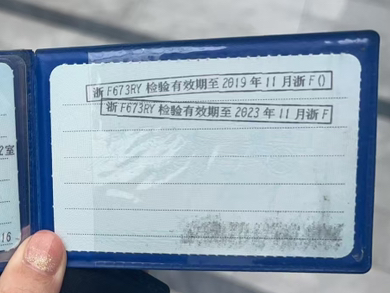 浙F673RY检验有效期至2019年11月浙F()
浙F673RY检验有效期至2023年11月浙F
室
16